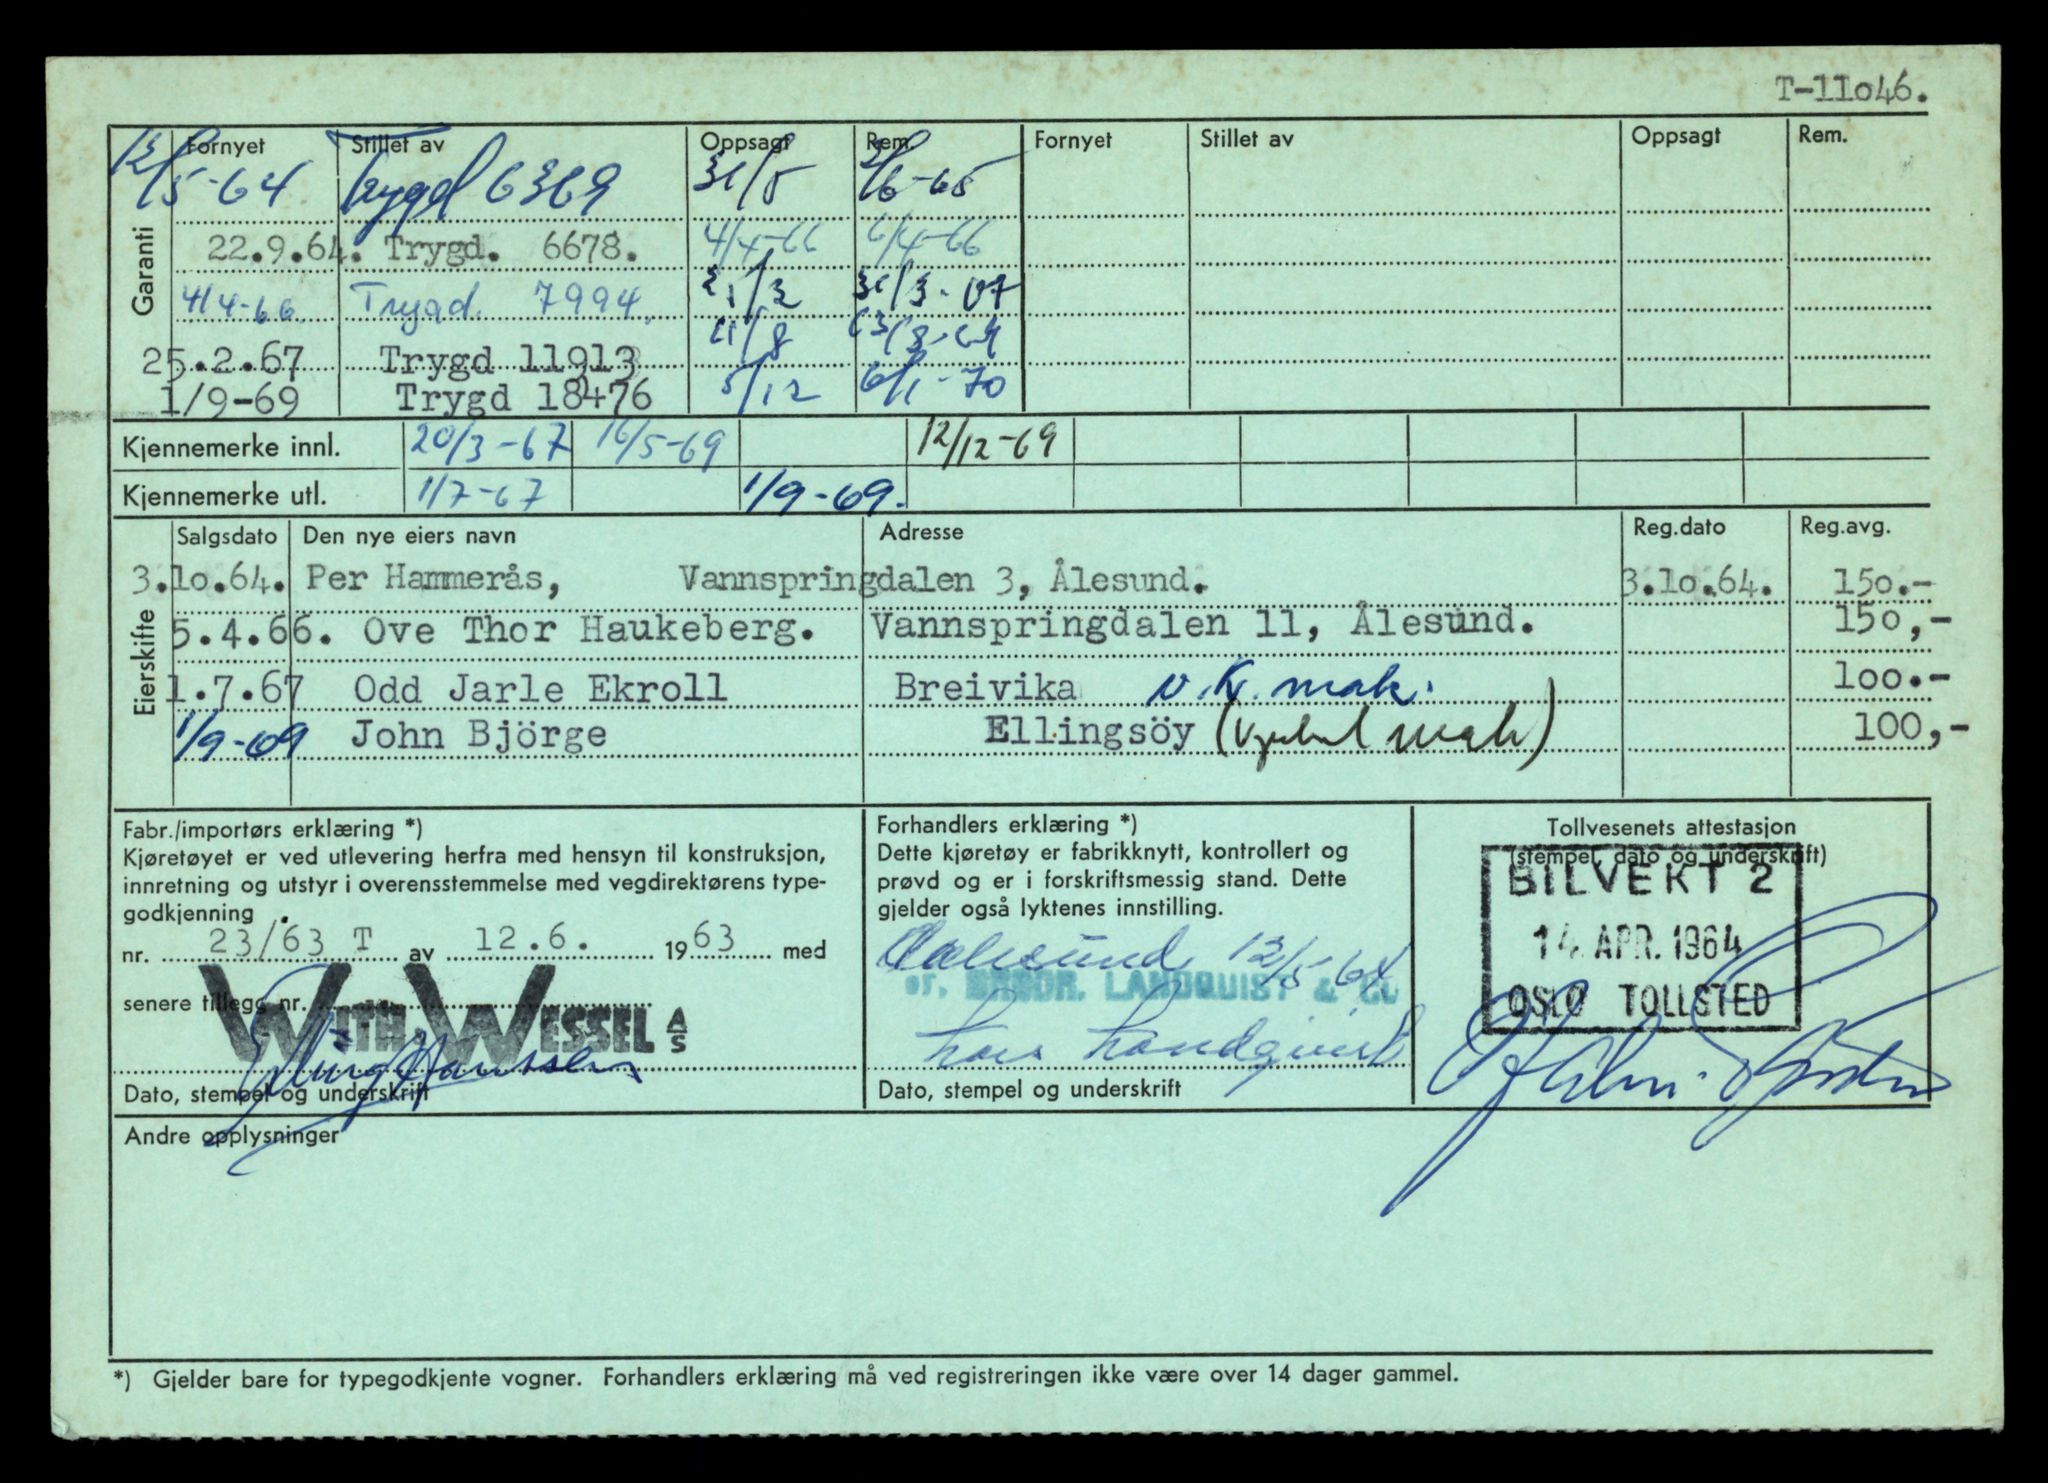 T-11046.
Fornyet Stillet av Oppsagt Rem. Fornyet Stillet av Oppsagt Rem.
Garanti
12/5-64 Trygd 6369 31/5 2/6-65
22.9.64. Trygd. 6678. 4/4-66 6/4-66
4/4-66. Trygd. 7994. 21/3 31/3-67
25.2.67 Trygd 11913 11/8 13/8-69
1/9-69 Trygd 18476 5/12 6/1-70
Kjennemerke innl. 20/3-67 16/5-69 12/12-69
Kjennemerke utl. 1/7-67 1/9-69.
Eierskifte
Salgsdato Den nye eiers navn Adresse Reg.dato Reg.avg.
3.10.64. Per Hammerås, Vannspringdalen 3, Ålesund. 3.10.64. 150.-
5.4.66. Ove Thor Haukeberg. Vannspringdalen 11, Ålesund. 150,-
1.7.67 Odd Jarle Ekroll Breivika v. Kj. mak. 100.-
1/9-69 John Björge Ellingsöy ( mak) 100,-
Fabr./importørs erklæring *)
Kjøretøyet er ved utlevering herfra med hensyn til konstruksjon,
innretning og utstyr i overensstemmelse med vegdirektørens type-
godkjenning
nr. 23/63 T av 12.6. 1963 med
senere tillegg nr.
WITH. WESSEL A/S
Dato, stempel og underskrift
Forhandlers erklæring *)
Dette kjøretøy er fabrikknytt, kontrollert og
prøvd og er i forskriftsmessig stand. Dette
gjelder også lyktenes innstilling.
Aalesund 12/5-64
BRØDR. LANDQUIST & CO
Lars Landqvist
Dato, stempel og underskrift
Tollvesenets attestasjon
(stempel, dato og underskrift)
BILVEKT 2
14. APR. 1964
OSLO TOLLSTED
Andre opplysninger
*) Gjelder bare for typegodkjente vogner. Forhandlers erklæring må ved registreringen ikke være over 14 dager gammel.